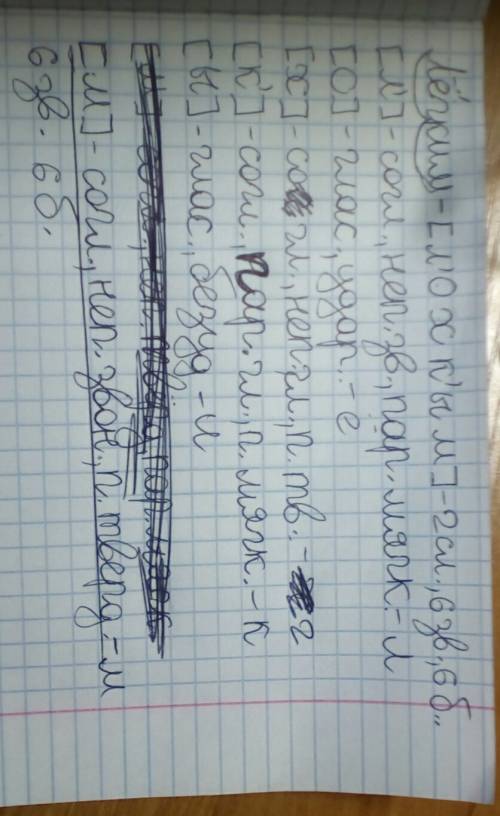 Лёгким - [л'о х к'ы м] - 2 сл., 6 зв, 6 б..
[л'] - согл., неп. зв, пар. мягк. - л
[о] - глас, удар. - е
[х] - согл., неп. гл, п. тв. - г
[к'] - согл., пар. гл., п. мягк. - к
[ы] - глас., безуд - и
[м] - согл., неп. звон., п. тверд - м
6 зв. 6 б.